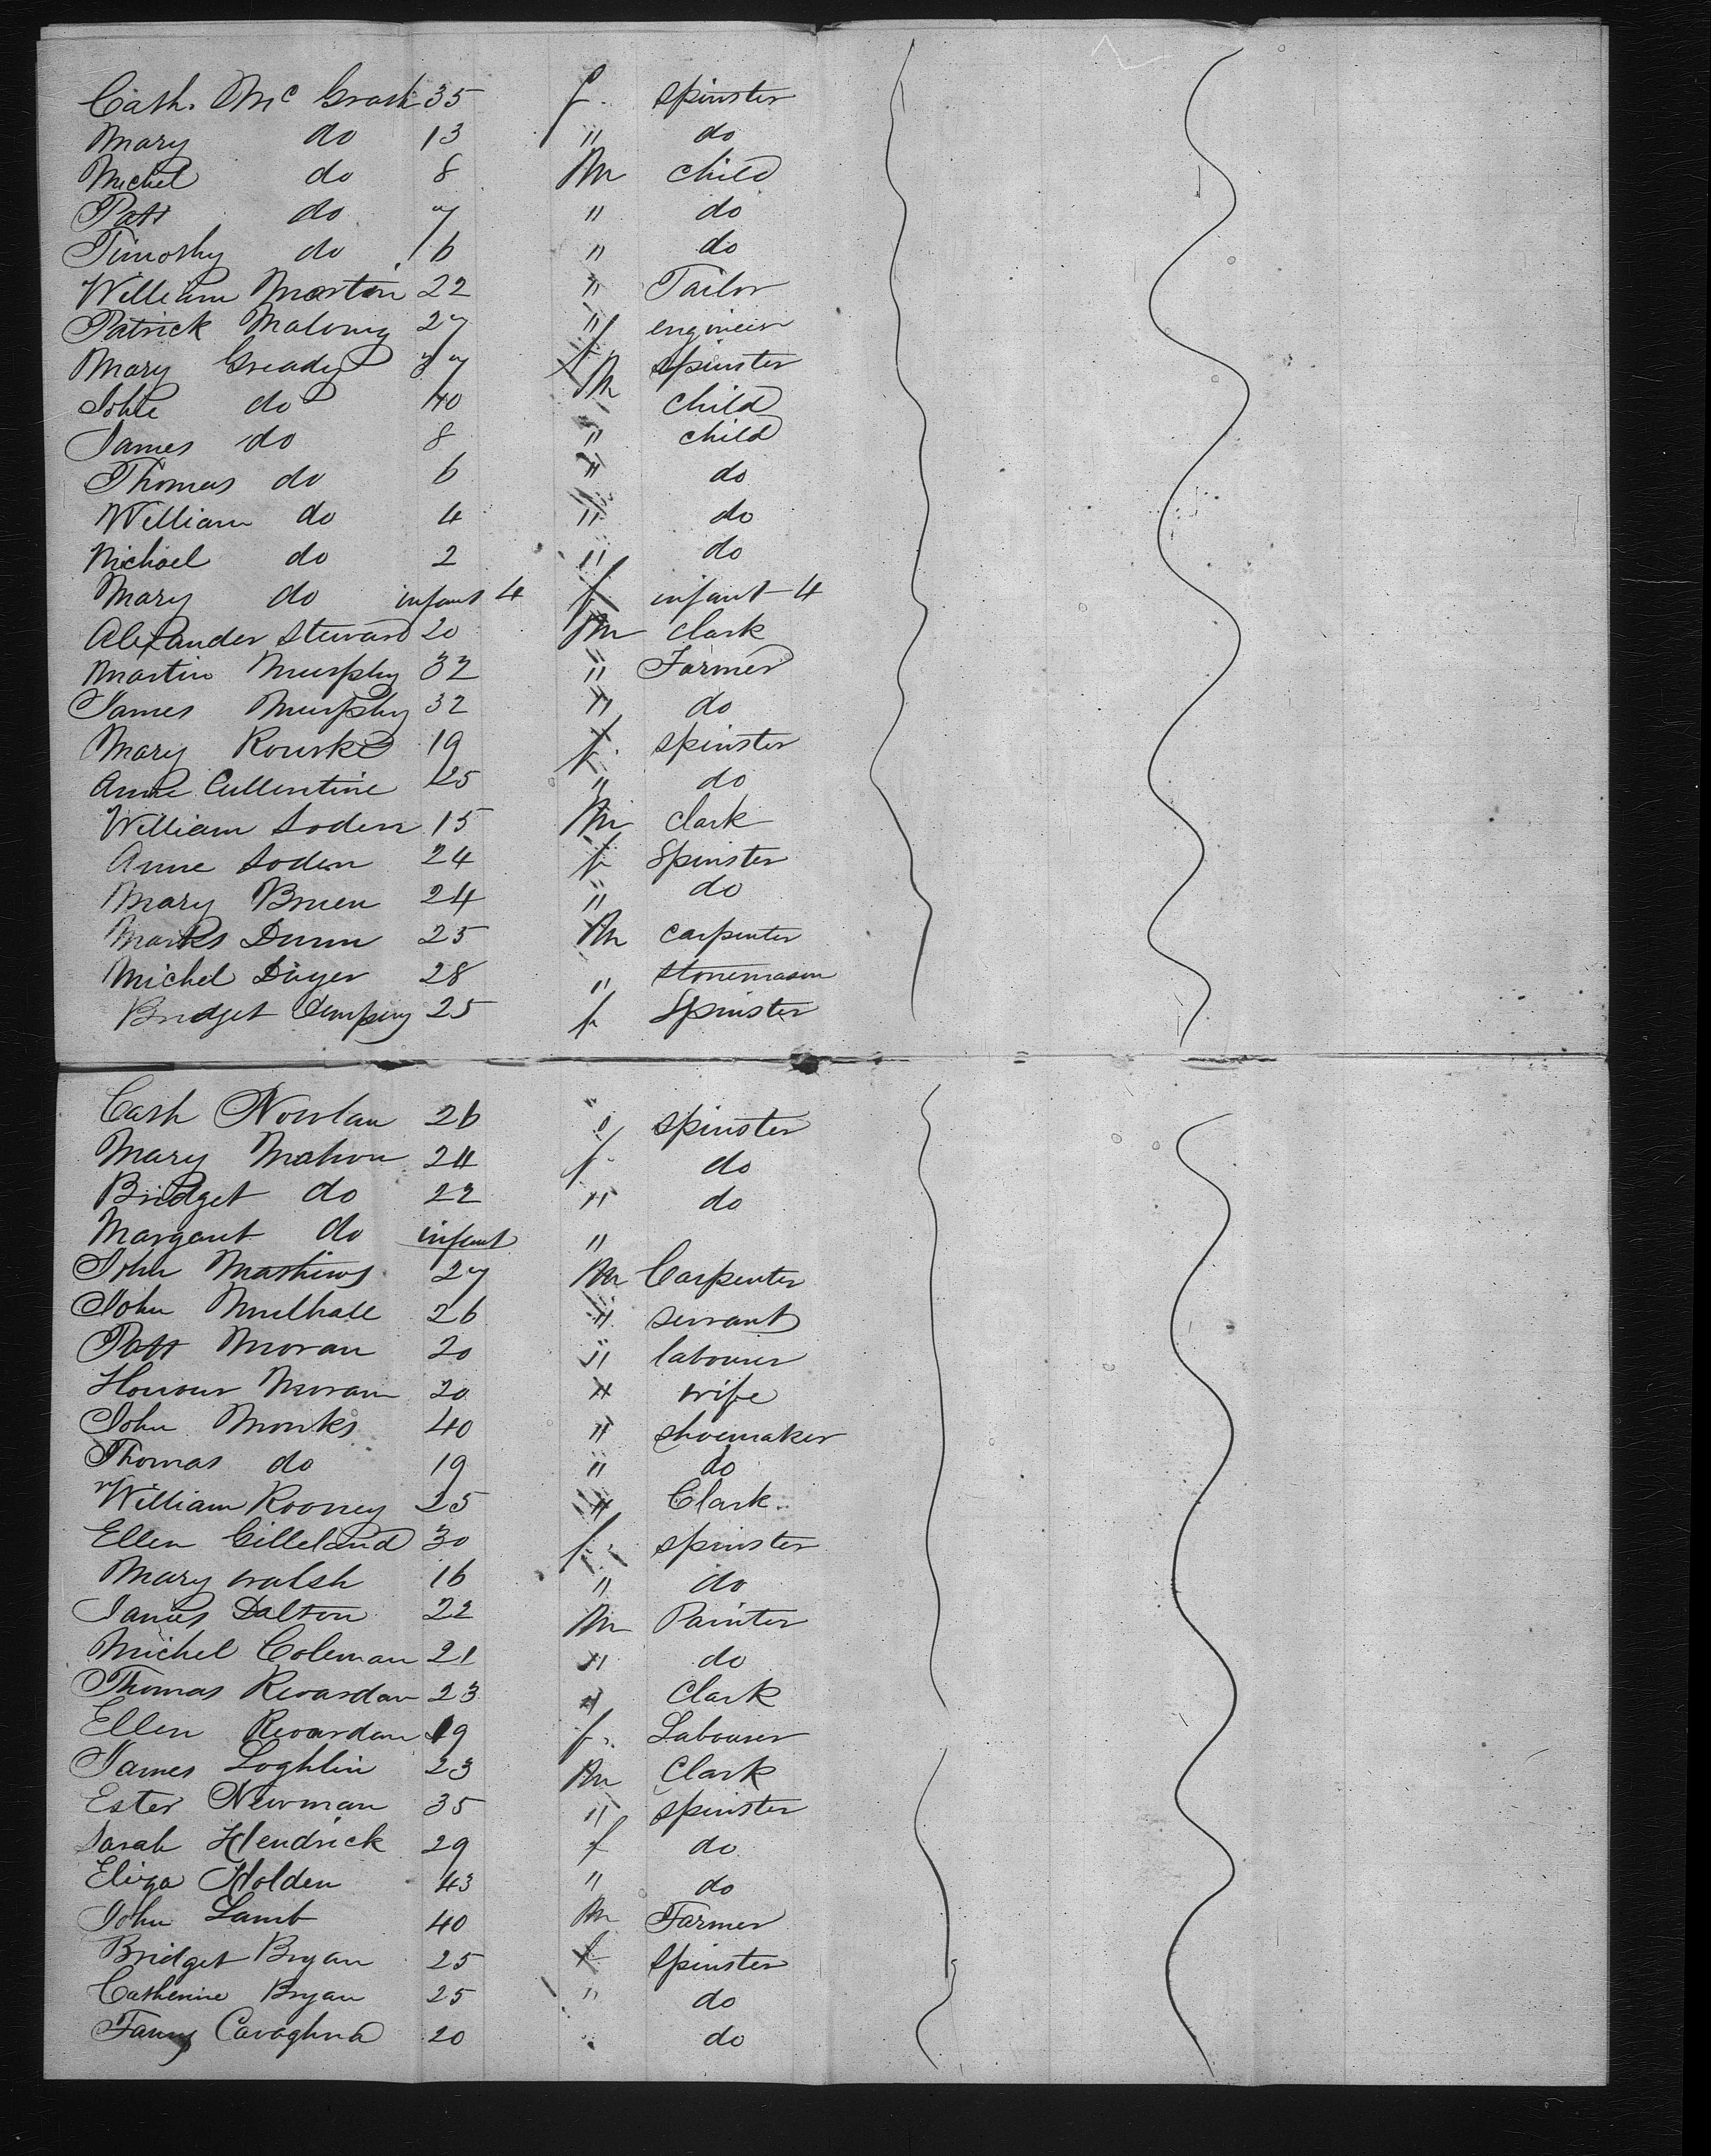 Cath. Mc Grath 35 f. spinster
Mary do 13 " do
Michel do 8 M child
Patt do 7 " do
Timothy do 6 " do
William Martin 22 " Tailor
Patrick Malony 27 " engineer
Mary Gready 37 f spinster
John do 10 M child
James do 8 " child
Thomas do 6 " do
William do 4 " do
Michael do 2 " do
Mary do infant 4 f infant 4
Alexander Steward 20 M Clark
Martin Murphy 32 " Farmer
James Murphy 32 " do
Mary Rourke 19 f. spinster
Anne Cullentine 25 " do
William Soden 15 M Clark
Anne Soden 24 f Spinster
Mary Bruen 24 " do
Marks Dunn 25 M carpenter
Michel Dwyer 28 " stonemason
Bridget Dempsey 25 f Spinster
Cath Nowlan 26 " spinster
Mary Mahon 24 f do
Bridget do 22 " do
Margaut do infant "
John Mathews 27 M Carpenter
John Mulhall 26 " servant
Patt Moran 20 " labourer
Honour Moran 20 " wife
John Monks 40 " shoemaker
Thomas do 19 " do
William Rooney 25 " Clark
Ellen Gilleland 30 f. spinster
Mary walsh 16 " do
James Dalton 22 M Painter
Michel Coleman 21 " do
Thomas Rewardan 23 " Clark
Ellen Rewardan 19 f. Labourer
James Loghlin 23 M Clark
Ester Newman 35 " spinster
Sarah Hendrick 29 f do
Eliza Holden 43 " do
John Lamb 40 M Farmer
Bridget Bryan 25 f spinster
Catherine Bryan 25 " do
Fanny Cavaghna 20 " do